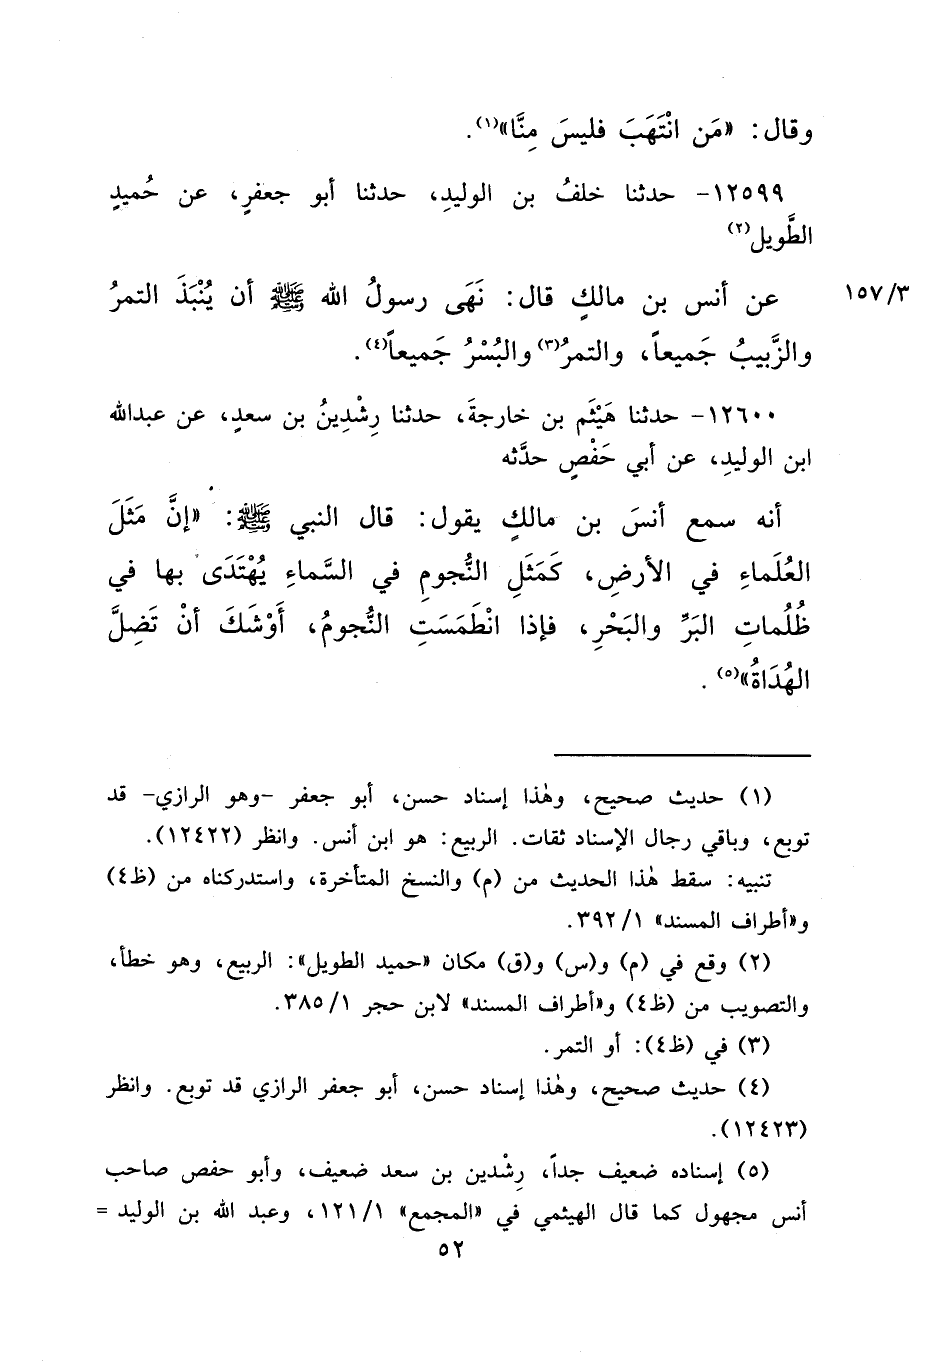 وقال: «مَن انْتَهَبَ فليسَ مِنَّا»(١).
١٢٥٩٩- حدثنا خلفُ بن الوليدِ، حدثنا أبو جعفرٍ، عن حُميدٍ
الطَّويل(٢)
٣/ ١٥٧
عن أنس بن مالكٍ قال: نَهَى رسولُ الله ﷺ أن يُنْبَذَ التمرُ
والزَّبيبُ جَميعاً، والتمرُ(٣) والبُسْرُ جَميعاً(٤).
١٢٦٠٠- حدثنا هَيْثَم بن خارجةَ، حدثنا رِشْدِينُ بن سعدٍ، عن عبدالله
ابن الوليدِ، عن أبي حَفْصٍ حدَّثه
أنه سمع أنسَ بن مالكٍ يقول: قال النبي ﷺ: «إنَّ مَثَلَ
العُلَماءِ في الأرضِ، كَمَثَلِ النُّجومِ في السَّماءِ يُهْتَدَى بها في
ظُلُماتِ البَرِّ والبَحْرِ، فإذا انْطَمَسَتِ النُّجومُ، أَوْشَكَ أنْ تَضِلَّ
الهُدَاةُ»(٥).
(١) حديث صحيح، وهٰذا إسناد حسن، أبو جعفر -وهو الرازي- قد
توبع، وباقي رجال الإسناد ثقات. الربيع: هو ابن أنس. وانظر (١٢٤٢٢).
تنبيه: سقط هٰذا الحديث من (م) والنسخ المتأخرة، واستدركناه من (ظ٤)
و«أطراف المسند» ١/ ٣٩٢.
(٢) وقع في (م) و(س) و(ق) مكان «حميد الطويل»: الربيع، وهو خطأ،
والتصويب من (ظ٤) و«أطراف المسند» لابن حجر ١/ ٣٨٥.
(٣) في (ظ٤): أو التمر.
(٤) حديث صحيح، وهٰذا إسناد حسن، أبو جعفر الرازي قد توبع. وانظر
(١٢٤٢٣).
(٥) إسناده ضعيف جداً، رِشْدين بن سعد ضعيف، وأبو حفص صاحب
أنس مجهول كما قال الهيثمي في «المجمع» ١/ ١٢١، وعبد الله بن الوليد =
٥٢